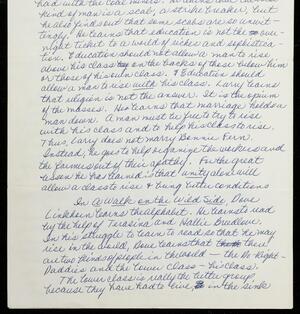 had with the coal miners. He learns that this
kind of man is a scab, a strike breaker. But
he also finds out that some scabs are so unwit-
tingly. He learns that education is not the one-
right ticket to a world of riches and sophistica-
tion. Education should not allow a man to rise
above his class on the backs of those below him
or those of his own class. Education should
allow a man to rise with his class. Larry learns
that religion is not the answer. It is the opium
of the masses. He learns that marriage holds a
man down. A man must be free to try to rise
with his class and to help his class to rise.
Thus, Larry does not marry Bonnie Fern.
Instead, he goes to help organize the workers and
the farmers out of their apathy. For the great
lesson he has learned is that unity alone will
allow a class to rise & bring better conditions
In A Walk on the Wild Side, Dove
Linkhorn learns the alphabet. He learns to read
by the help of Terasina and Hallie Breedlove.
In his struggle to learn to read so that he may
rise in the world, Dove learns that there
are two kinds of people in the world – the Do-Right-
Daddies and the lower class – his class.
The lower class is really the better group,
because they have had to live in the